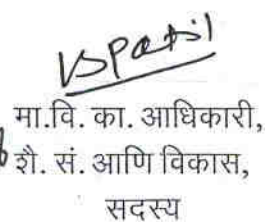 VSPatil
मा.वि. का. आधिकारी,
शै. सं. आणि विकास,
सदस्य